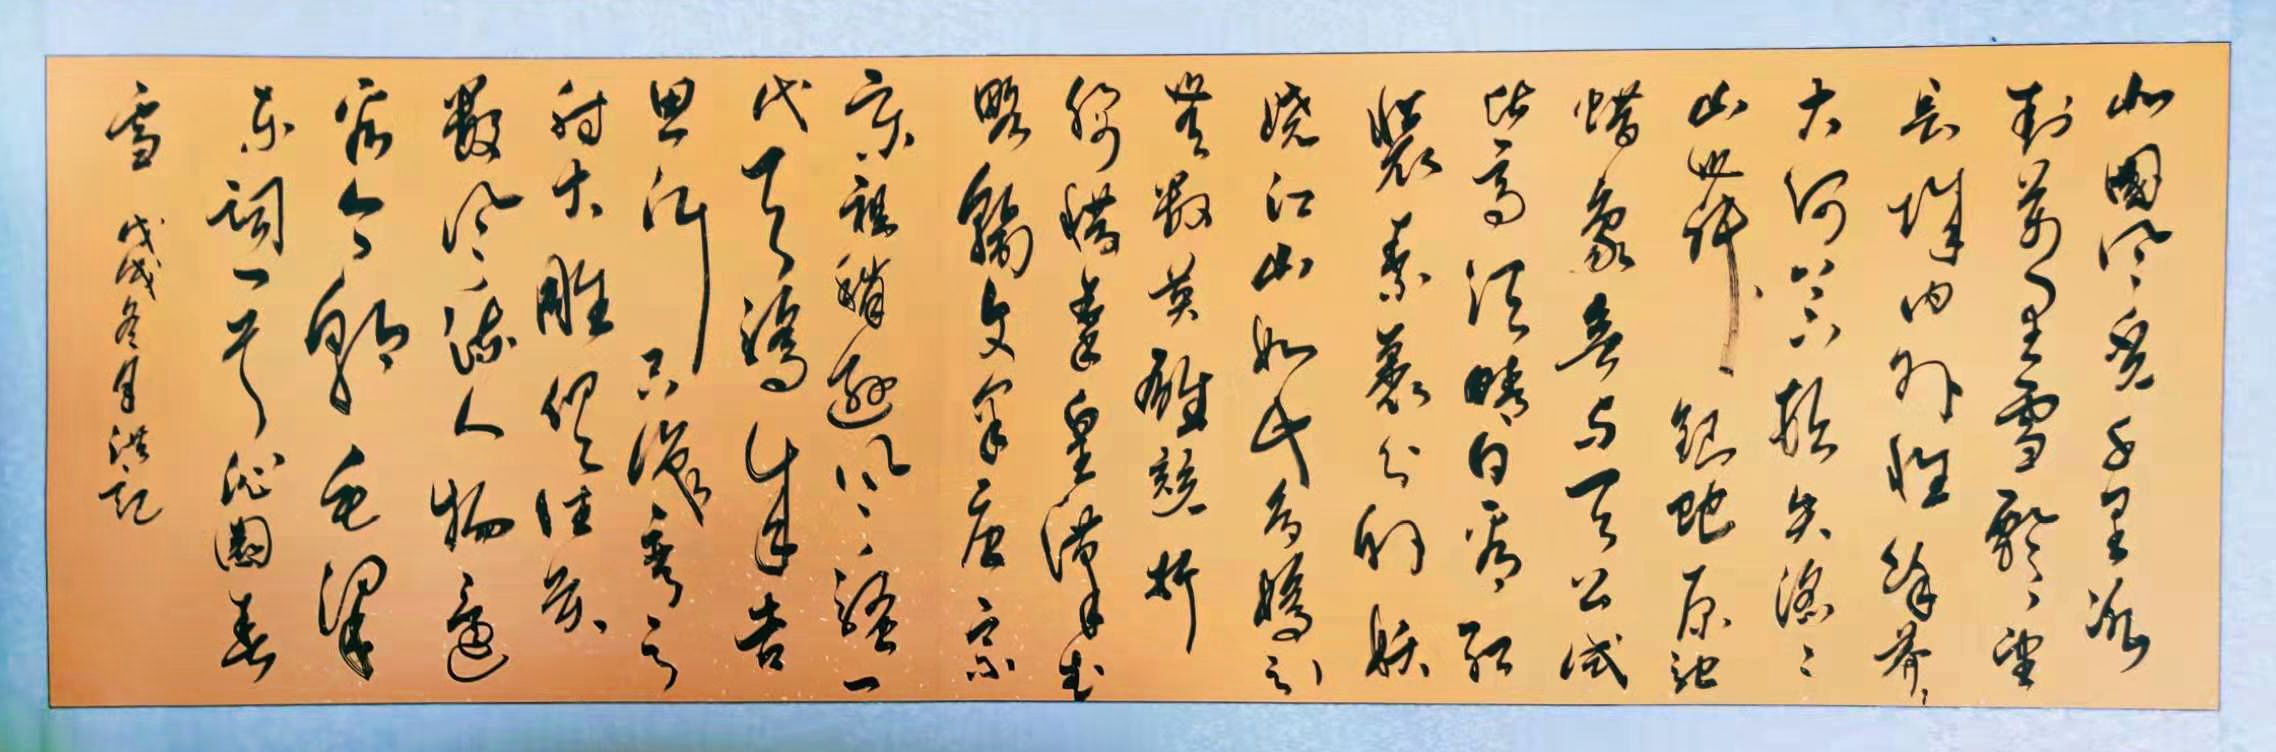 北國风光千里冰
封萬里雪飘望
長城内外惟餘莽々
大河上下頓失滔々
山舞銀蛇原馳
蜡象欲与天公试
比高须晴日看红
裝素裹分外妖
娆江山如此多嬌引
無數英雄競折
腰惜秦皇漢武
略輸文采唐宗
宋祖稍遜风骚一
代天驕成吉
思汗只识弯弓
射大雕俱往矣
數风流人物還
看今朝毛澤
东詞一首沁園春
雪 戊戌冬月洪記